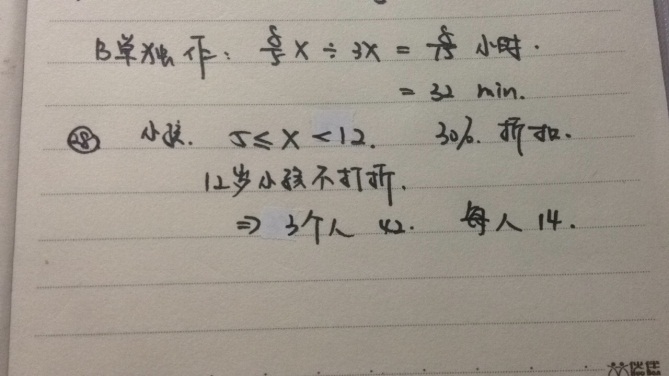 B单独作: 8/5 X ÷ 3X = 8/15 小时.
= 32 min.
㉘ 小孩. 5 ≤ X < 12. 30%. 折扣.
12岁小孩不打折.
⇒ 3个人 42. 每人 14.